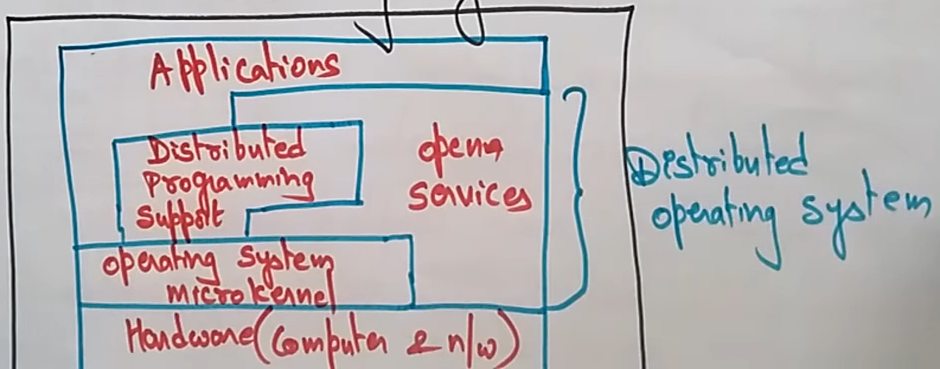 Applications
Distributed
Programming
Support
open
services
operating system
microkernel
Hardware (Computer & n/w)
Distributed
operating system